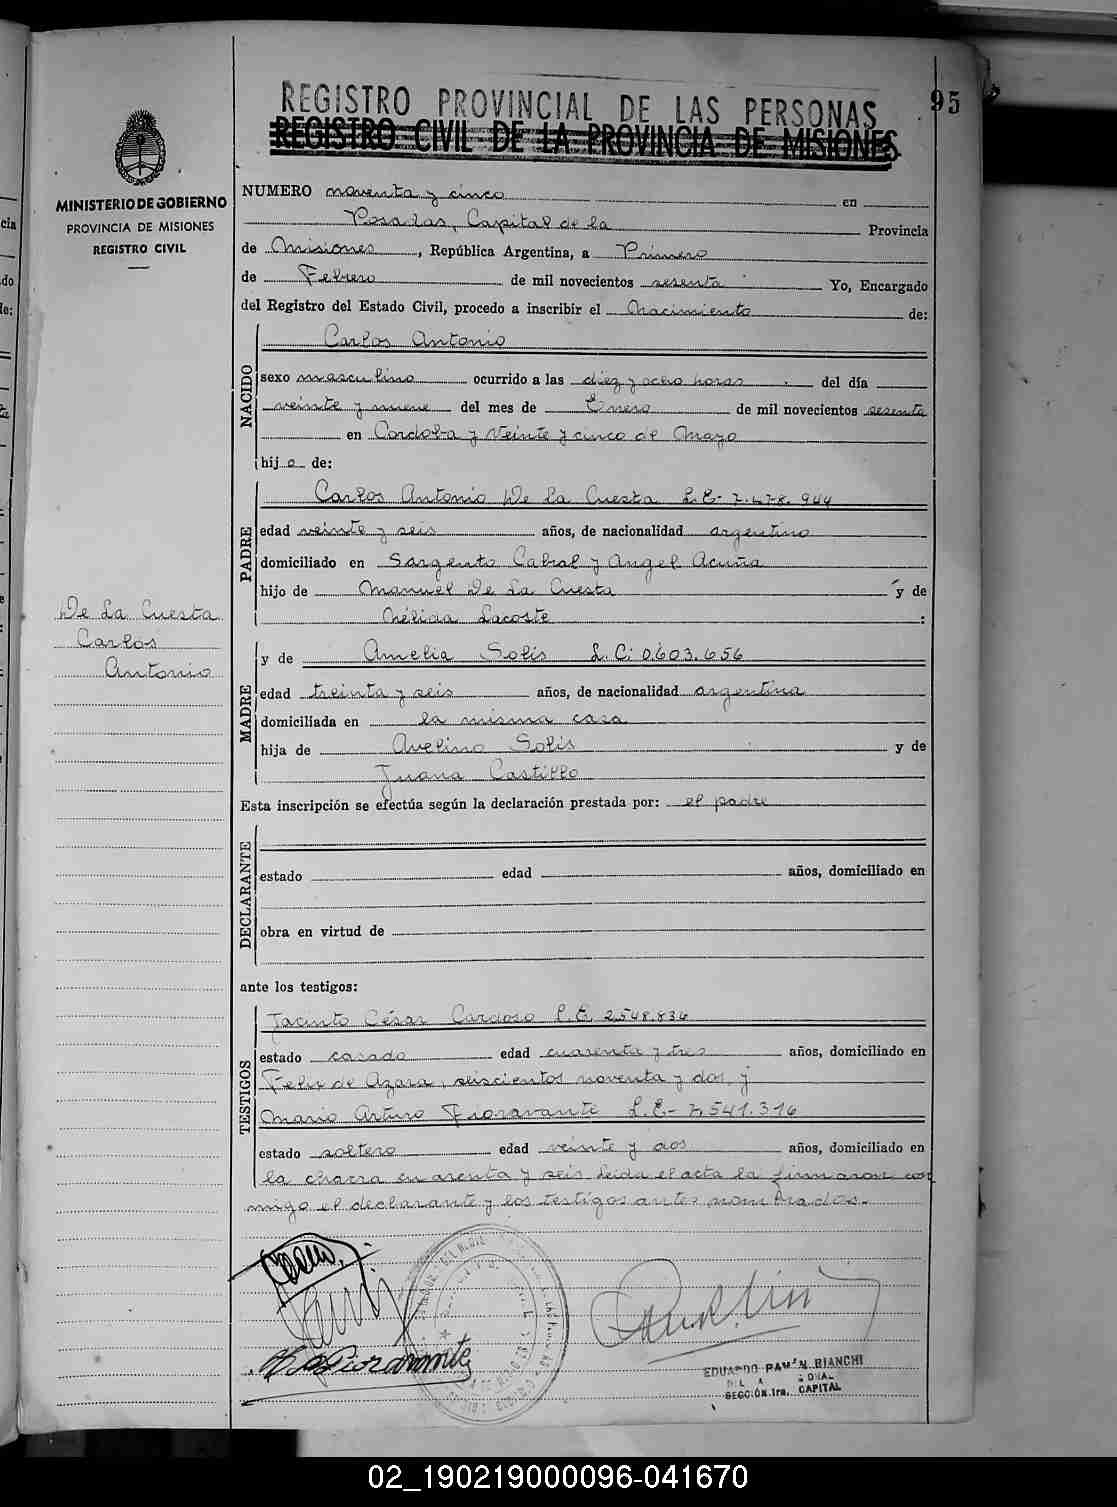 95
REGISTRO PROVINCIAL DE LAS PERSONAS
REGISTRO CIVIL DE LA PROVINCIA DE MISIONES
MINISTERIO DE GOBIERNO
PROVINCIA DE MISIONES
REGISTRO CIVIL
De La Cuesta
Carlos
Antonio
NUMERO noventa y cinco en
Posadas, Capital de la Provincia
de Misiones, República Argentina, a Primero
de Febrero de mil novecientos sesenta Yo, Encargado
del Registro del Estado Civil, procedo a inscribir el Nacimiento de:
NACIDO
Carlos Antonio
sexo masculino ocurrido a las diez y ocho horas del día
veinte y nueve del mes de Enero de mil novecientos sesenta
en Cordoba y Veinte y cinco de Mayo
hijo de:
PADRE
Carlos Antonio De La Cuesta L.E- 7.478.944
edad veinte y seis años, de nacionalidad argentino
domiciliado en Sargento Cabral y Angel Acuña
hijo de Manuel De La Cuesta y de
Nélida Lacoste :
MADRE
y de Amelia Solis L.C. 0.603.656
edad treinta y seis años, de nacionalidad argentina
domiciliada en la misma casa
hija de Avelino Solis y de
Juana Castillo
Esta inscripción se efectúa según la declaración prestada por: el padre
DECLARANTE
estado edad años, domiciliado en
obra en virtud de
ante los testigos:
TESTIGOS
Jacinto César Cardozo L.E. 2.548.836
estado casado edad cuarenta y tres años, domiciliado en
Felix de Azara, seiscientos noventa y dos, y
Mario Arturo Fioravante L.E- 7.541.316
estado soltero edad veinte y dos años, domiciliado en
la chacra cuarenta y seis Leida el acta la firmaron con
migo el declarante y los testigos antes nombrados.-
EDUARDO RAMÓN BIANCHI
SECCIÓN 1ra. CAPITAL
02_190219000096-041670